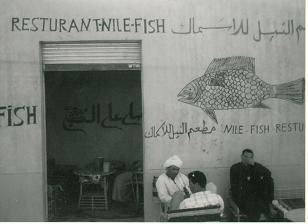 RESTURANT-NILE-FISH النيل للاسماك
مطعم
FiSH
مطعم النيل للاسماك NILE-FISH RESTU